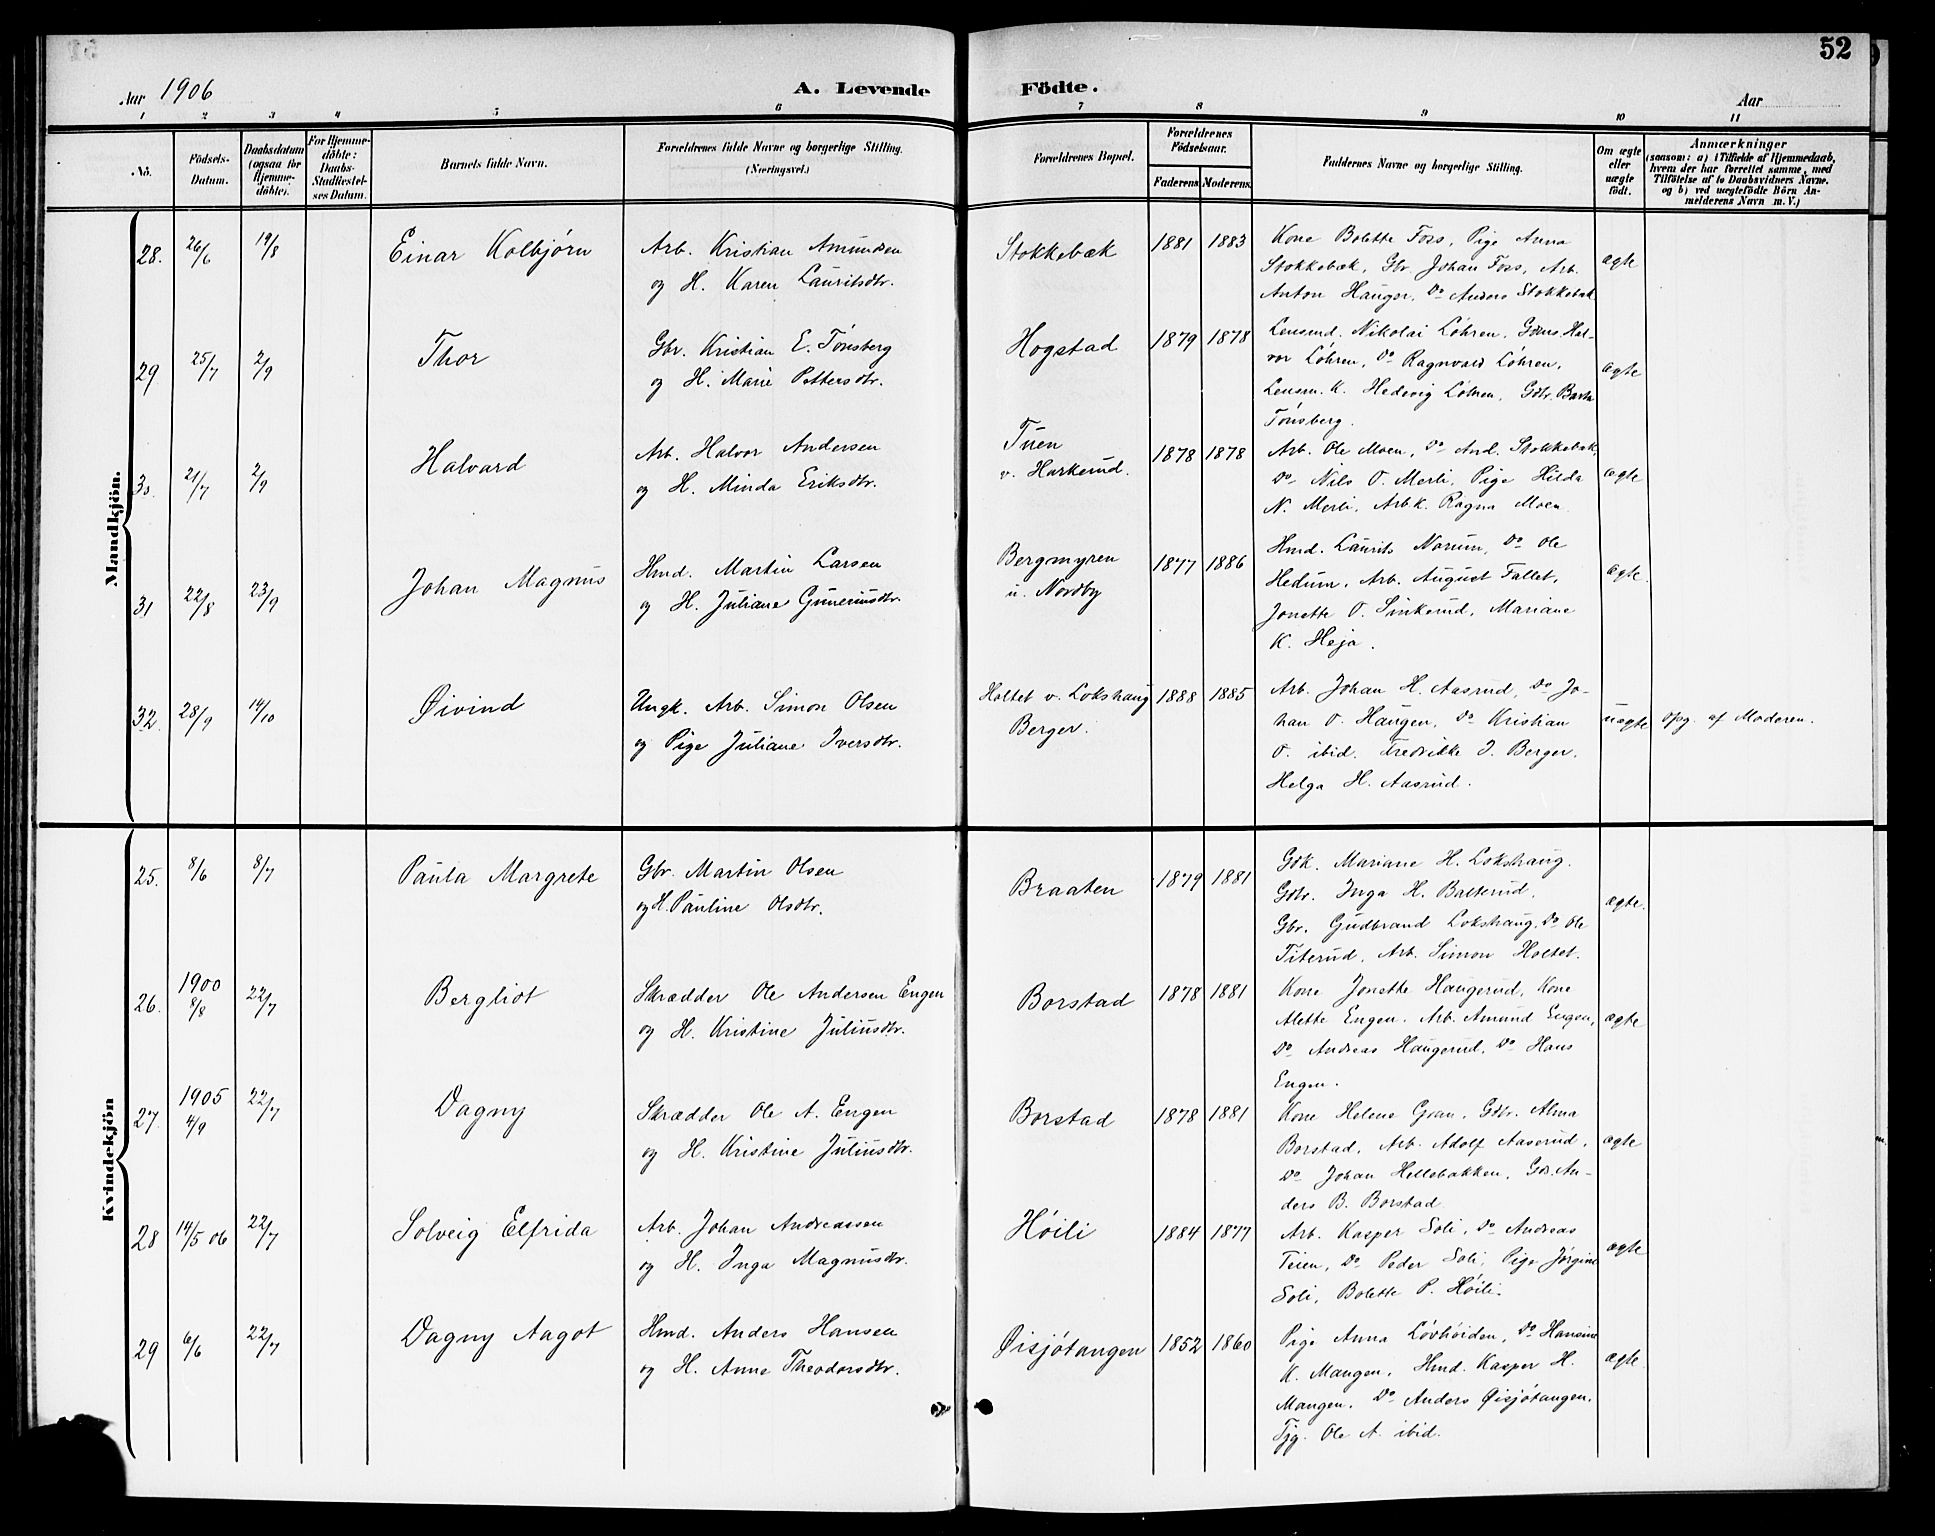 52
Aar 1906
A. Levende Födte.
Aar
1 2 3 4 5 6 7 8 9 10 11
No.
Födsels-
Datum.
Daabsdatum
(ogsaa for
Hjemme-
döbte).
For Hjemme-
döbte:
Daabs-
Stadfæstel-
ses Datum.
Barnets fulde Navn.
Forældrenes fulde Navne og borgerlige Stilling.
(Næringsvei.)
Forældrenes Bopæl.
Forældrenes
Födselsaar.
Faderens. Moderens.
Faddernes Navne og borgerlige Stilling.
Om ægte
eller
uægte
födt.
Anmærkninger
(saasom: a) i Tilfælde af Hjemmedaab,
hvem der har forrettet samme, med
Tilföielse af to Daabsvidners Navne.
og b) ved uægtefödte Börn An-
melderens Navn m. V.)
Mandkjön.
28. 26/6 19/8 Einar Kolbjørn
Arb. Kristian Amundsen
og H. Karen Lauritsdtr.
Stokkebæk 1881 1883
Kone Bolette Foss, Pige Anna
Stokkebæk, Gbr. Johan Foss, Arb.
Anton Haugor, Do Anders Stokkebæk
ægte
29 25/7 2/9 Thor
Gbr. Kristian E. Tónsberg
og H. Marie Pettersdtr.
Hogstad 1879 1878
Lensmd. Nikolai Lóhren, Gdms. Hal-
vor Lóhren, Do Ragnvald Lóhren,
Lensm. K. Hedevig Lóhren, Gdtr. Bertha
Tónsberg.
ægte
30. 21/7 2/9 Halvard
Arb. Halvor Andersen
og H. Minda Eriksdtr.
Tuen
v. Harkerud. 1878 1878
Arb. Ole Moen, Do And. Stokkebæk,
Do Nils O. Merli, Pige Hilda
N. Merli, Arbk. Ragna Moen
ægte
31 22/8 23/9 Johan Magnus
Hmd. Martin Larsen
og H. Juliane Guneriusdtr.
Bergmyren
u. Nordby 1877 1886
Hmd. Laurits Norum, Do Ole
Hedum, Arb. August Fallet,
Jonette O. Sinkerud, Mariane
K. Heja.
ægte
32. 28/9 14/10 Øivind
Ungk. Arb. Simon Olsen
og Pige Juliane Iversdtr.
Holtet v. Lokshaug
Berger. 1888 1885
Arb. Johan H. Aasrud, Do Jo-
han O. Haugen, Do Kristian
O. ibid. Fredrikke I. Berger,
Helga H. Aasrud.
uægte opg. af Moderen.
Kvindekjön
25. 8/6 8/7 Paula Margrete
Gbr. Martin Olsen
og H. Pauline Olsdtr.
Braaten 1879 1881
Gdk. Mariane H. Lokshaug.
Gdtr. Inga H. Balterud.
Gbr. Gudbrand Lokshaug, Do Ole
Titerud, Arb. Simon Holtet.
ægte.
26. 1900 8/8 22/7 Bergliot
Skrædder Ole Andersen Engen
og H. Kristine Juliusdtr.
Borstad 1878 1881
Kone Jonette Haugerud, Kone
Alette Engen. Arb. Amund Engen,
Do Andreas Haugerud, Do Hans
Engen.
ægte
27. 1905 4/9 22/7 Dagny
Skrædder Ole A. Engen
og H. Kristine Juliusdtr.
Borstad 1878 1881
Kone Helene Gran, Gdtr. Alma
Borstad, Arb. Adolf Aaserud,
Do Johan Hellebakken, Gds. An-
ders B. Borstad
ægte
28 14/5 06 22/7 Solveig Elfrida
Arb. Johan Andreassen
og H. Inga Magnusdtr.
Hóili 1884 1877
Arb. Kasper Soli, Do Andreas
Teien, Do Peder Soli, Pige Jórgine
Soli, Bolette P. Hóili.
ægte
29 6/6 22/7 Dagny Aagot
Hmd. Anders Hansen
og H. Anne Theodorsdtr.
Øisjótangen 1852 1860
Pige Anna Lóvhóiden, Do Hansine
K. Mangen, Hmd. Kasper H.
Mangen. Do Anders Øisjótangen,
Tjg. Ole A. ibid.
ægte